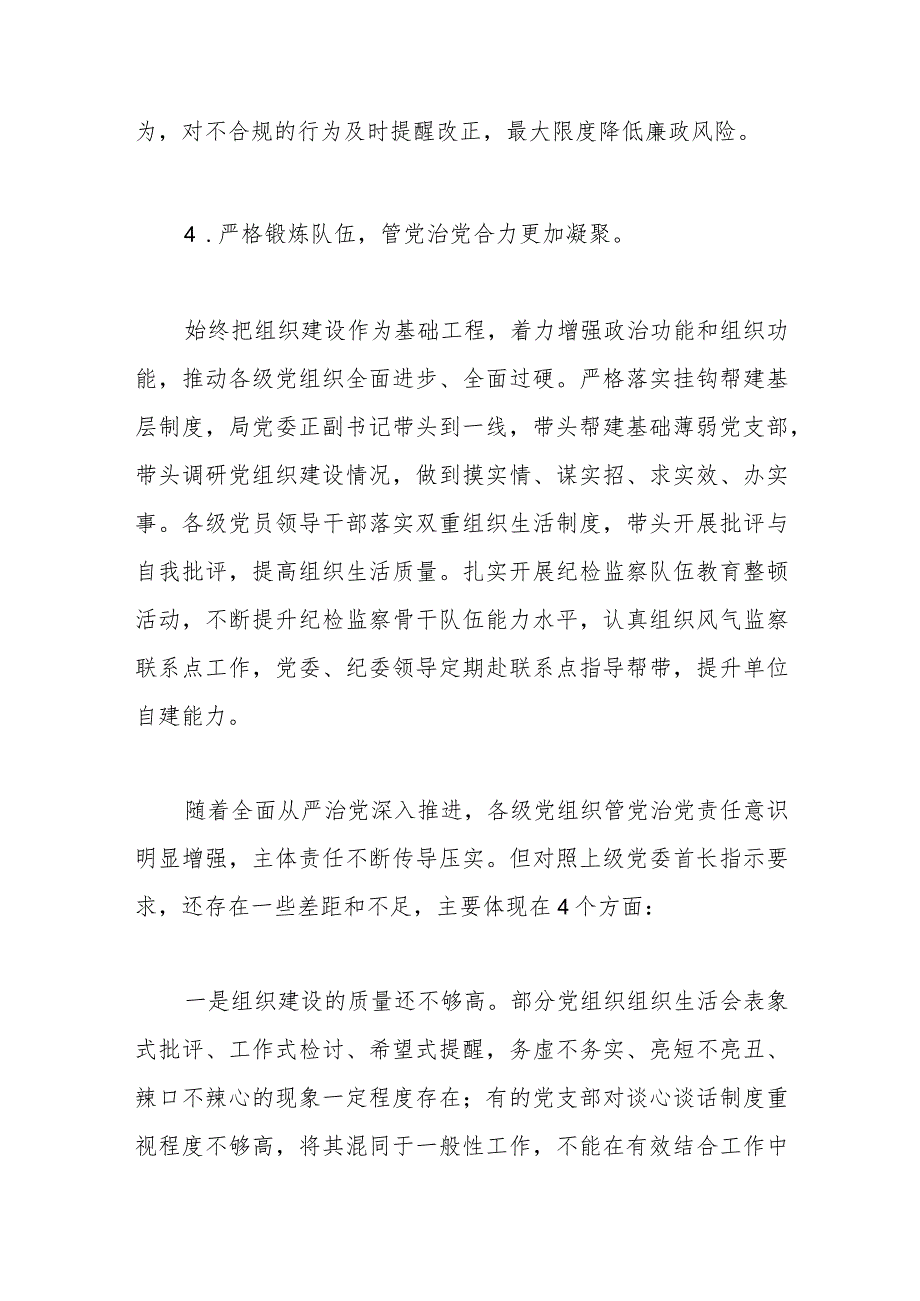 为，对不合规的行为及时提醒改正，最大限度降低廉政风险。
4 .严格锻炼队伍，管党治党合力更加凝聚。
始终把组织建设作为基础工程，着力增强政治功能和组织功
能，推动各级党组织全面进步、全面过硬。严格落实挂钩帮建基
层制度，局党委正副书记带头到一线，带头帮建基础薄弱党支部，
带头调研党组织建设情况，做到摸实情、谋实招、求实效、办实
事。各级党员领导干部落实双重组织生活制度，带头开展批评与
自我批评，提高组织生活质量。扎实开展纪检监察队伍教育整顿
活动，不断提升纪检监察骨干队伍能力水平，认真组织风气监察
联系点工作，党委、纪委领导定期赴联系点指导帮带，提升单位
自建能力。
随着全面从严治党深入推进，各级党组织管党治党责任意识
明显增强，主体责任不断传导压实。但对照上级党委首长指示要
求，还存在一些差距和不足，主要体现在4个方面：
一是组织建设的质量还不够高。部分党组织组织生活会表象
式批评、工作式检讨、希望式提醒，务虚不务实、亮短不亮丑、
辣口不辣心的现象一定程度存在；有的党支部对谈心谈话制度重
视程度不够高，将其混同于一般性工作，不能在有效结合工作中